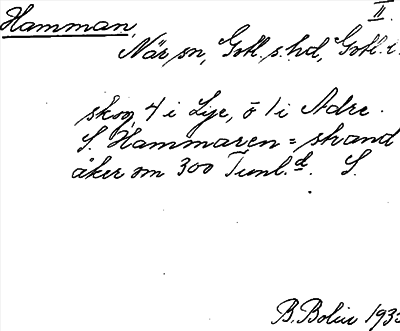 Hamman, II.
När sn, Gotl. s. hd, Gotl. l.
skog 4 i Lye, ö 1 i Ardre.
S. Hammaren = strand
åker om 300 Tunl.d. S.
B. Bolin 1933